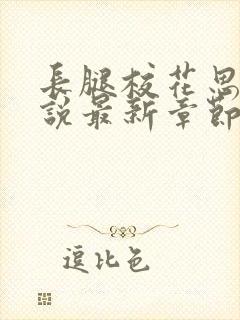 長腿校花思
說最新章節
逗比色